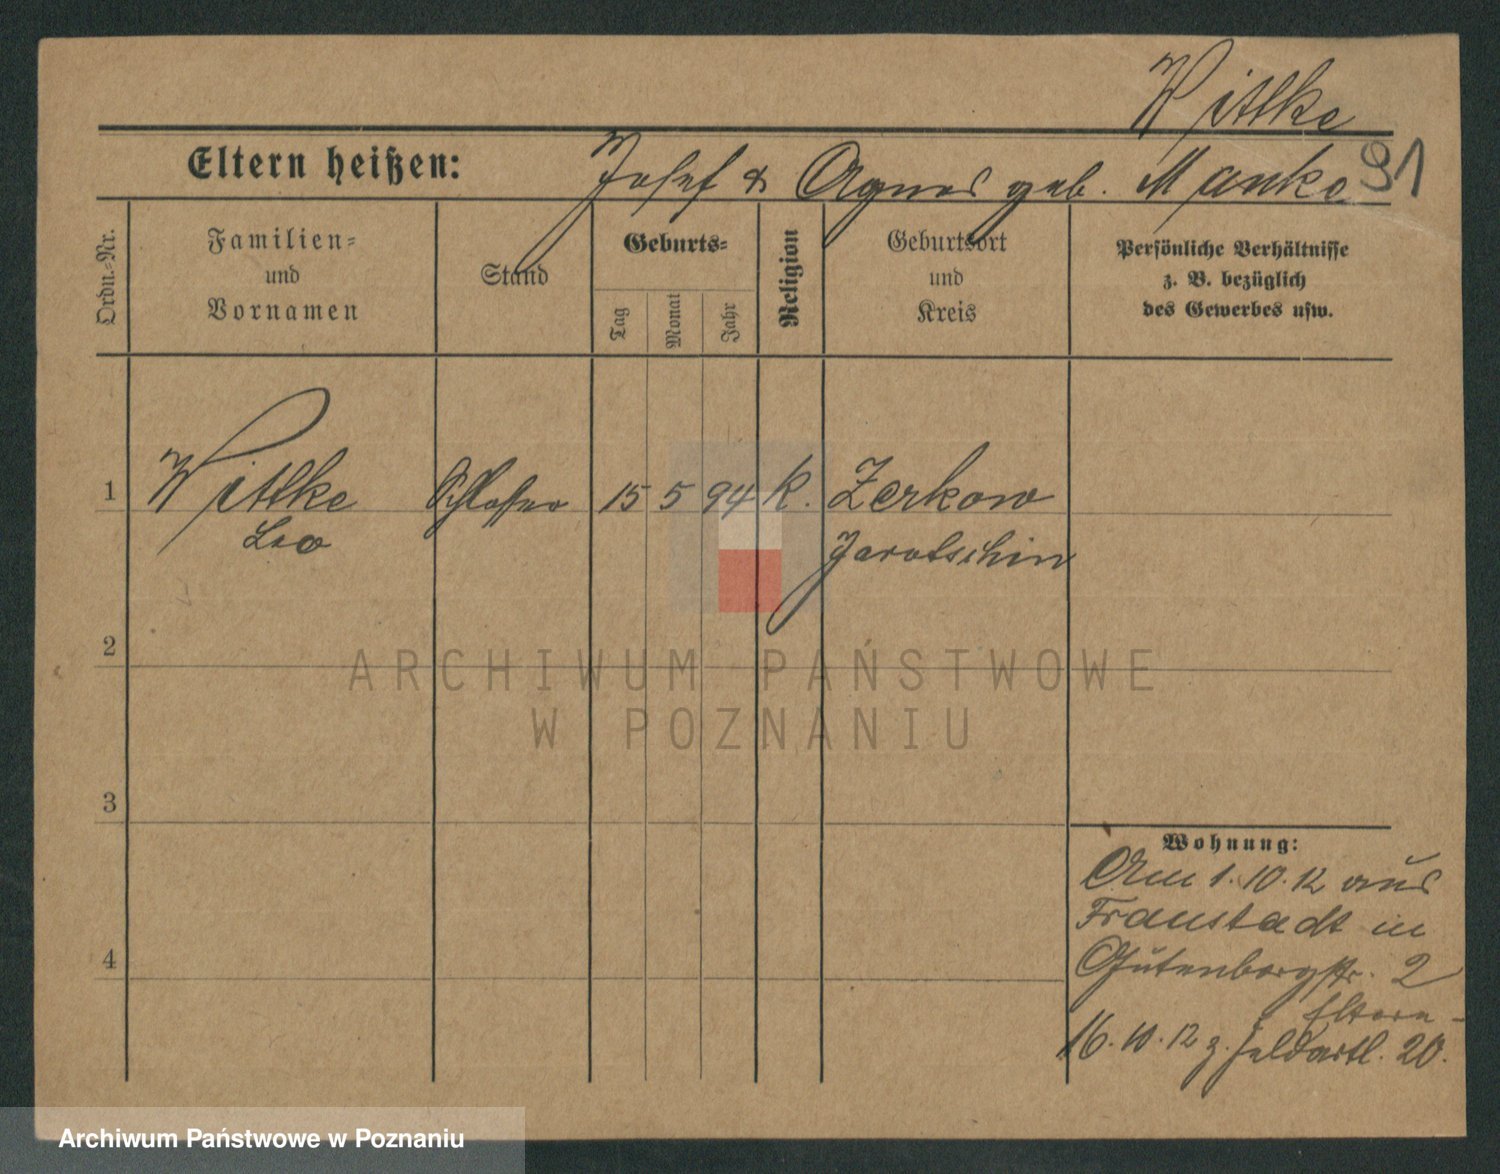 Wittke
Eltern heißen: Josef & Agnes geb. Manke
91
Ordn.-Nr.
Familien-
und
Vornamen
Stand
Geburts-
Tag
Monat
Jahr
Religion
Geburtsort
und
Kreis
Persönliche Verhältnisse
z. B. bezüglich
des Gewerbes usw.
1 Wittke Schlosser 15 5 94 k. Zerkow
Leo
Jarotschin
2
ARCHIWUM PAŃSTWOWE
W POZNANIU
3
Wohnung:
Am 1.10.12 aus
Fraustadt in
Gutenbergstr. 2
Eltern-
4
16.10.12 z. Feldartl. 20.
Archiwum Państwowe w Poznaniu